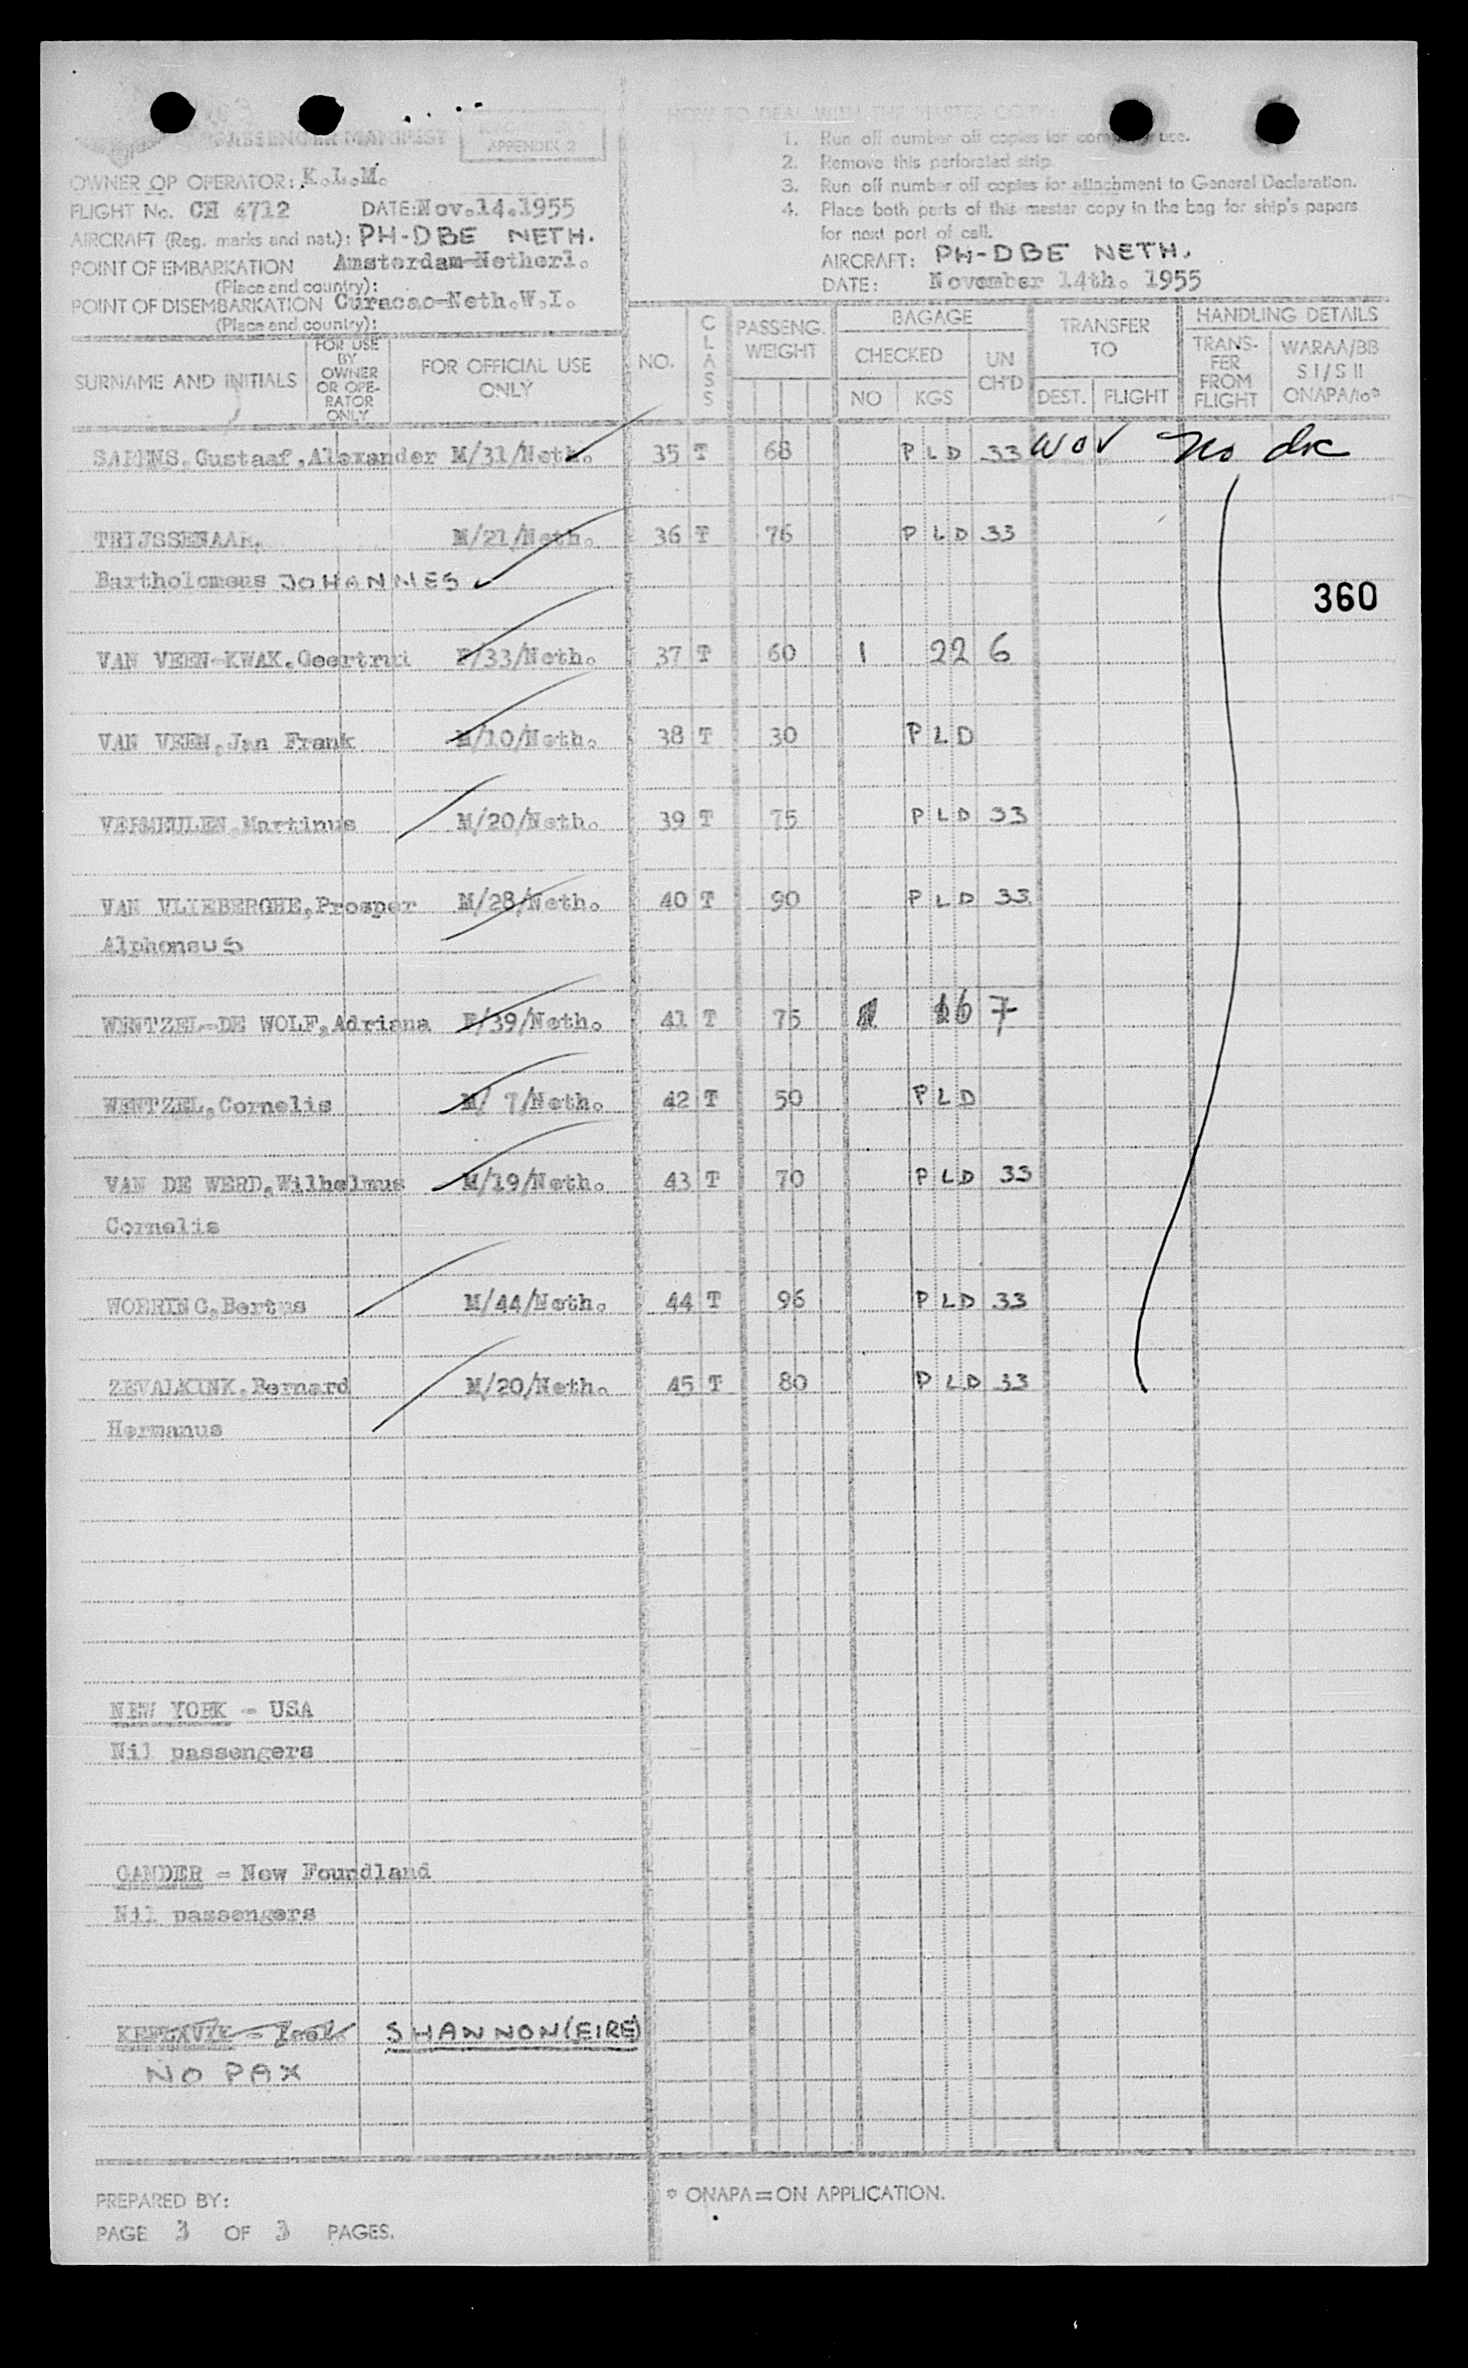 PASSENGER MANIFEST
APPENDIX 2
OWNER OP OPERATOR: K.L.M.
FLIGHT No. CH 4712 DATE: Nov.14.1955
AIRCRAFT (Reg. marks and nat.): PH-DBE NETH.
POINT OF EMBARKATION Amsterdam-Netherl.
(Place and country):
POINT OF DISEMBARKATION Curacao-Neth.W.I.
(Place and country):
HOW TO DEAL WITH THE MASTER COPY
1. Run off number off copies for company use.
2. Remove this perforated strip.
3. Run off number off copies for attachment to General Declaration.
4. Place both parts of this master copy in the bag for ship's papers
for next port of call.
AIRCRAFT: PH-DBE NETH.
DATE: November 14th. 1955
SURNAME AND INITIALS
FOR USE BY OWNER OR OPE-RATOR ONLY
FOR OFFICIAL USE ONLY
NO. CLASS PASSENG. WEIGHT
BAGAGE CHECKED NO KGS UN CH'D
TRANSFER TO DEST. FLIGHT
HANDLING DETAILS TRANS-FER FROM FLIGHT WARAA/BB S I/S II ONAPA/10*
Gustaaf, Alexander M/31/Neth. 35 T 68 PLD 33 WOV No dk
TRIJSSENAAR, M/21/Neth. 36 T 76 PLD 33
Bartholomeus JOHANNES
360
VAN VEEN-KWAK, Geertrui F/33/Neth. 37 T 60 1 22 6
VAN VEEN, Jan Frank M/10/Neth. 38 T 30 PLD
VERMEULEN, Martinus M/20/Neth. 39 T 75 PLD 33
VAN VLIEBERGHE, Prosper M/28/Neth. 40 T 90 PLD 33
Alphonsus
WENTZEL-DE WOLF, Adriana F/39/Neth. 41 T 75 16 7
WENTZEL, Cornelis M/ 7/Neth. 42 T 50 PLD
VAN DE WERD, Wilhelmus M/19/Neth. 43 T 70 PLD 33
Cornelis
WOERING, Bertus M/44/Neth. 44 T 96 PLD 33
ZEVALKINK, Bernard M/20/Neth. 45 T 80 PLD 33
Hermanus
NEW YORK - USA
Nil passengers
GANDER - New Foundland
Nil passengers
KEFLAVIK - Icel. SHANNON (EIRE)
NO PAX
PREPARED BY:
PAGE 3 OF 3 PAGES.
* ONAPA = ON APPLICATION.